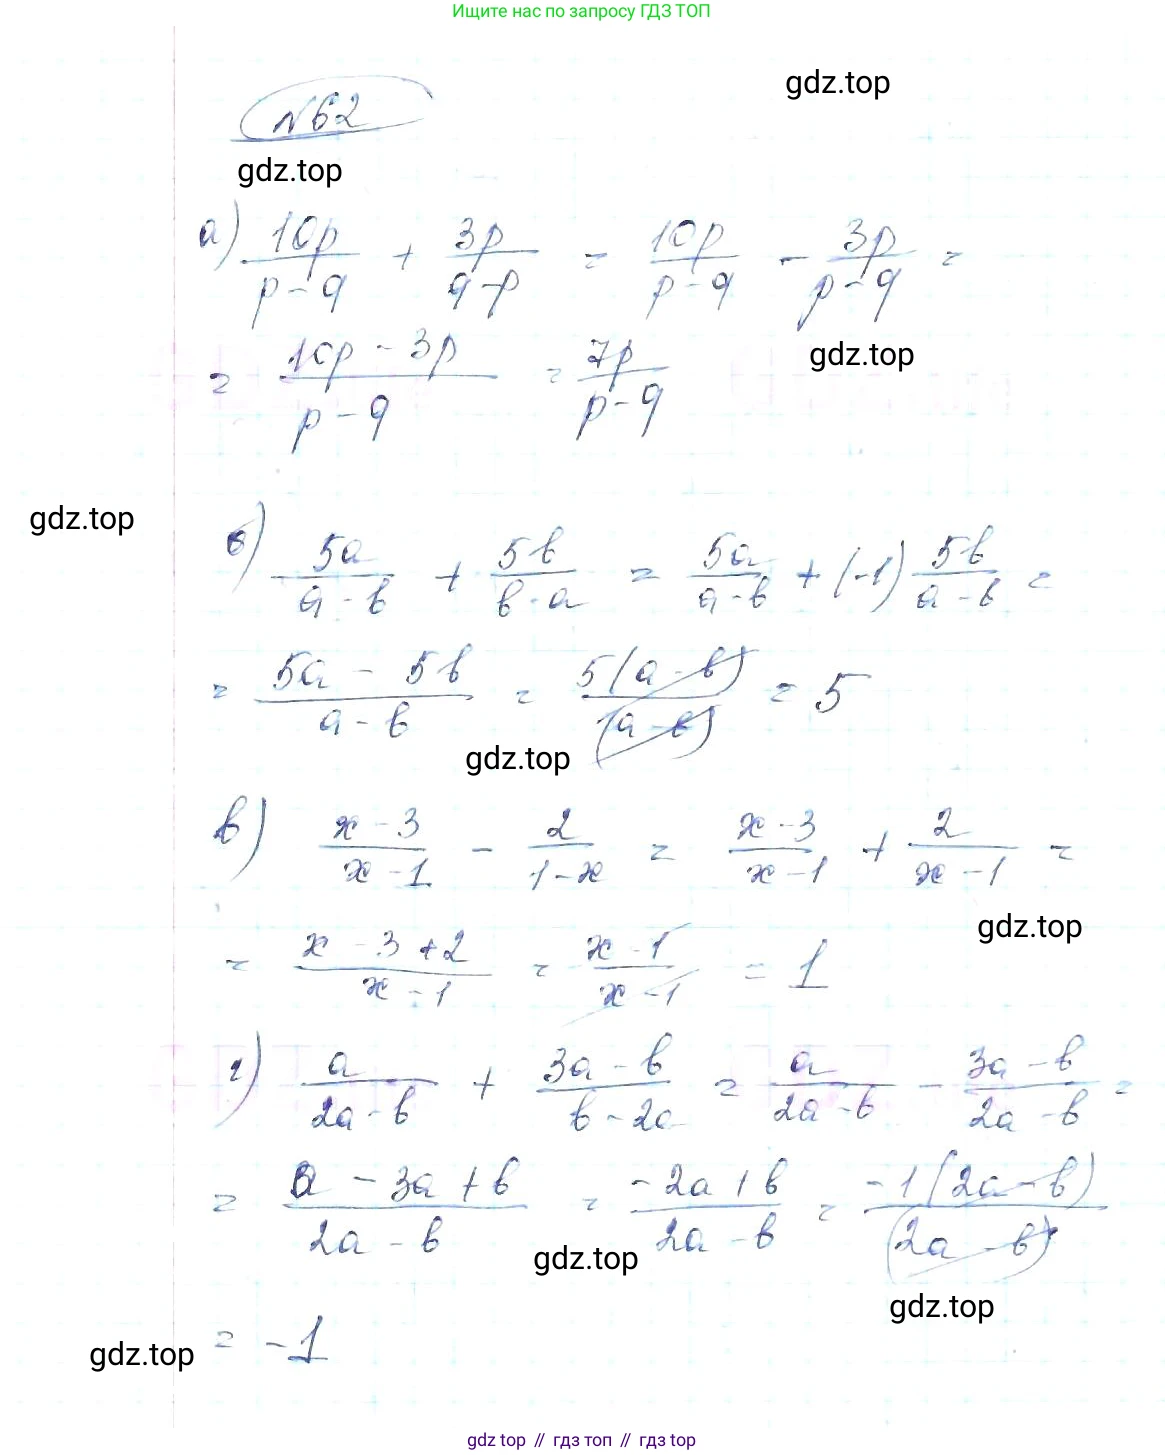 Ищите нас по запросу ГДЗ ТОП
gdz.top
№62
gdz.top
а) 10p/(p-q) + 3p/(q-p) = 10p/(p-q) - 3p/(p-q) =
= (10p - 3p)/(p-q) = 7p/(p-q)
gdz.top
gdz.top
б) 5a/(a-b) + 5b/(b-a) = 5a/(a-b) + (-1) 5b/(a-b) =
= (5a - 5b)/(a-b) = 5(a-b)/(a-b) = 5
gdz.top
в) (x-3)/(x-1) - 2/(1-x) = (x-3)/(x-1) + 2/(x-1) =
gdz.top
= (x-3+2)/(x-1) = (x-1)/(x-1) = 1
г) a/(2a-b) + (3a-b)/(b-2a) = a/(2a-b) - (3a-b)/(2a-b) =
= (a-3a+b)/(2a-b) = (-2a+b)/(2a-b) = -1(2a-b)/(2a-b)
gdz.top
gdz.top
= -1
gdz.top
gdz top // гдз топ // гдз top